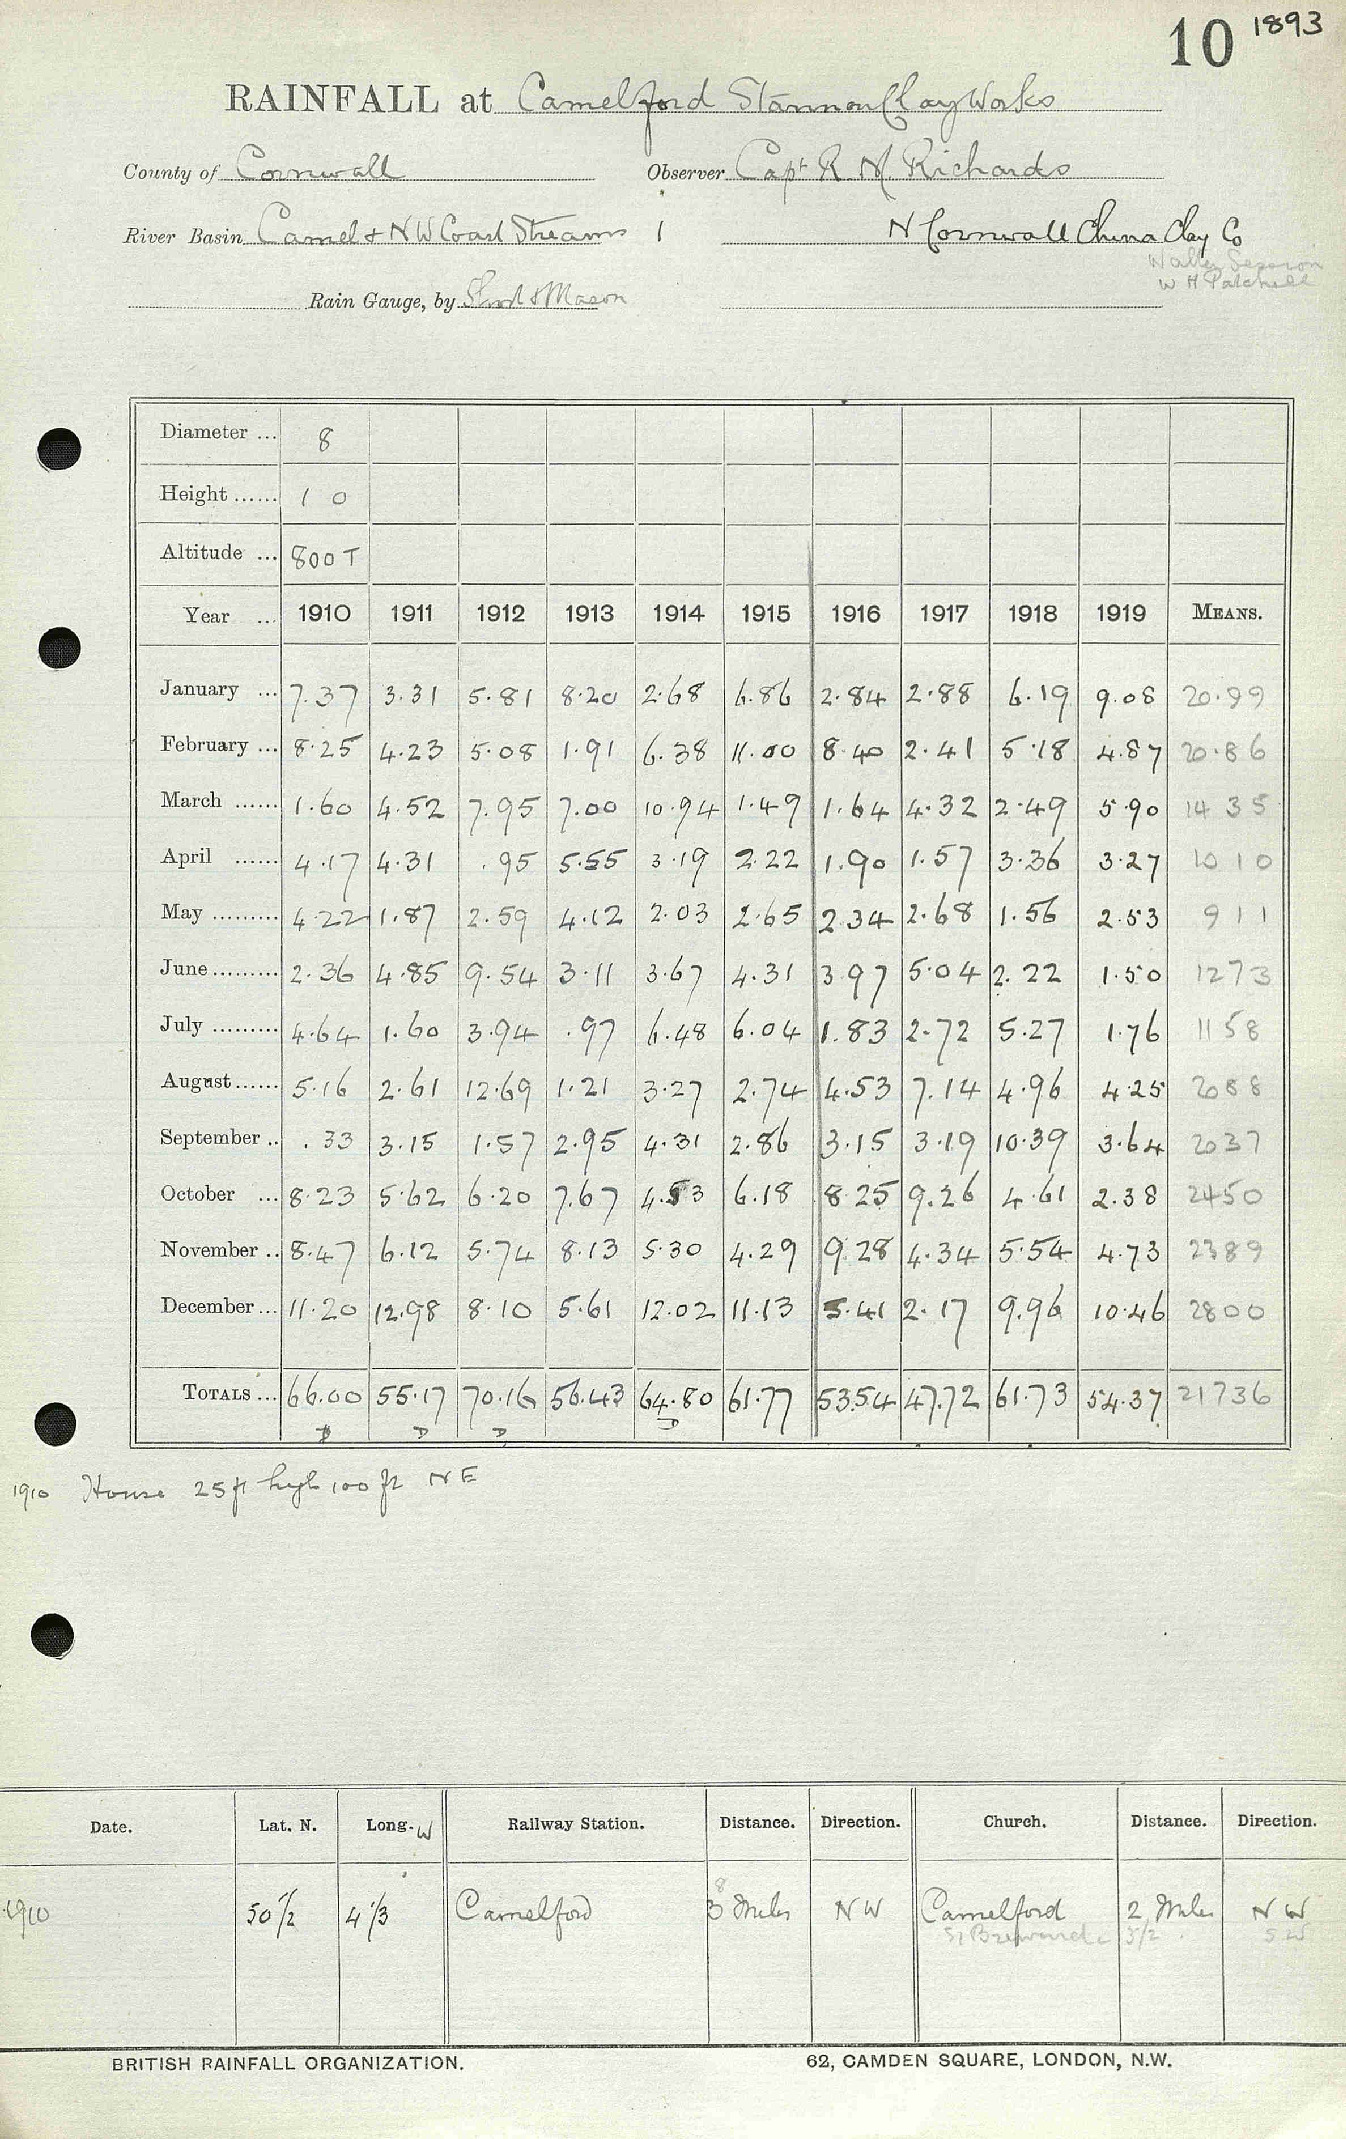 10 1893
RAINFALL at Camelford Stannon Clay Works
County of Cornwall Observer Capt R M Richards
River Basin Camel & NW Coast Streams 1 N Cornwall China Clay Co
Walter
W H Patchell
Rain Gauge, by & Mason
Diameter ... 8
Height ...... 1 0
Altitude ... 800 T
Year ... 1910 1911 1912 1913 1914 1915 1916 1917 1918 1919 MEANS.
January ... 7.37 3.31 5.81 8.20 2.68 6.86 2.84 2.88 6.19 9.08 20.99
February ... 8.25 4.23 5.08 1.91 6.38 11.00 8.40 2.41 5.18 4.87 20.86
March ...... 1.60 4.52 7.95 7.00 10.94 1.49 1.64 4.32 2.49 5.90 14 35
April ...... 4.17 4.31 .95 5.55 3.19 2.22 1.90 1.57 3.36 3.27 10 10
May ......... 4.22 1.87 2.59 4.12 2.03 2.65 2.34 2.68 1.56 2.53 9 11
June ......... 2.36 4.85 9.54 3.11 3.67 4.31 3.97 5.04 2.22 1.50 1273
July ......... 4.64 1.60 3.94 .97 6.48 6.04 1.83 2.72 5.27 1.76 1158
August...... 5.16 2.61 12.69 1.21 3.27 2.74 4.53 7.14 4.96 4.25 2088
September .. .33 3.15 1.57 2.95 4.31 2.86 3.15 3.19 10.39 3.64 2037
October ... 8.23 5.62 6.20 7.67 4.53 6.18 8.25 9.26 4.61 2.38 2450
November .. 8.47 6.12 5.74 8.13 5.30 4.29 9.28 4.34 5.54 4.73 2389
December ... 11.20 12.98 8.10 5.61 12.02 11.13 5.41 2.17 9.96 10.46 2800
TOTALS ... 66.00 55.17 70.16 56.43 64.80 61.77 53.54 47.72 61.73 54.37 21736
D D D D
1910 House 25 ft high 100 ft NE
Date. Lat. N. Long. W Railway Station. Distance. Direction. Church. Distance. Direction.
8
1910 50 1/2 4 1/3 Camelford 3 Miles NW Camelford 2 Miles NW
St Breward 3 1/2 SW
BRITISH RAINFALL ORGANIZATION. 62, CAMDEN SQUARE, LONDON, N.W.